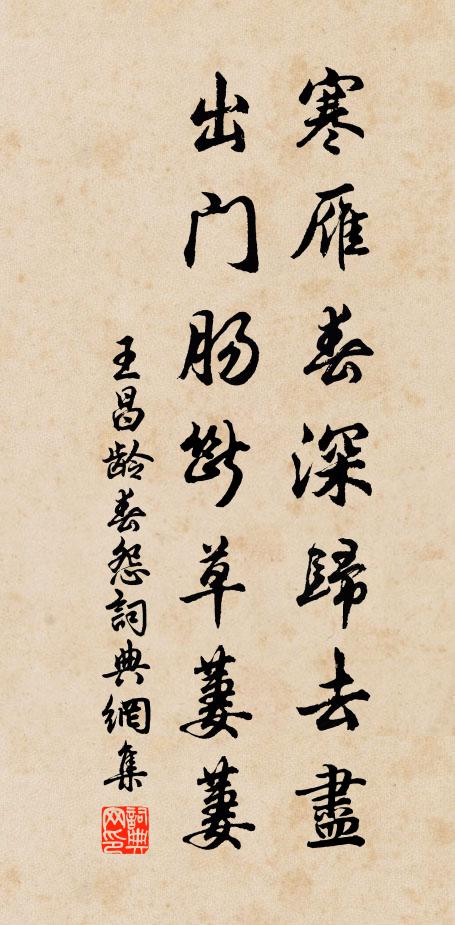 寒雁春深歸去盡
出门肠斷草萋萋
王昌龄春怨詞典網集
詞典网印